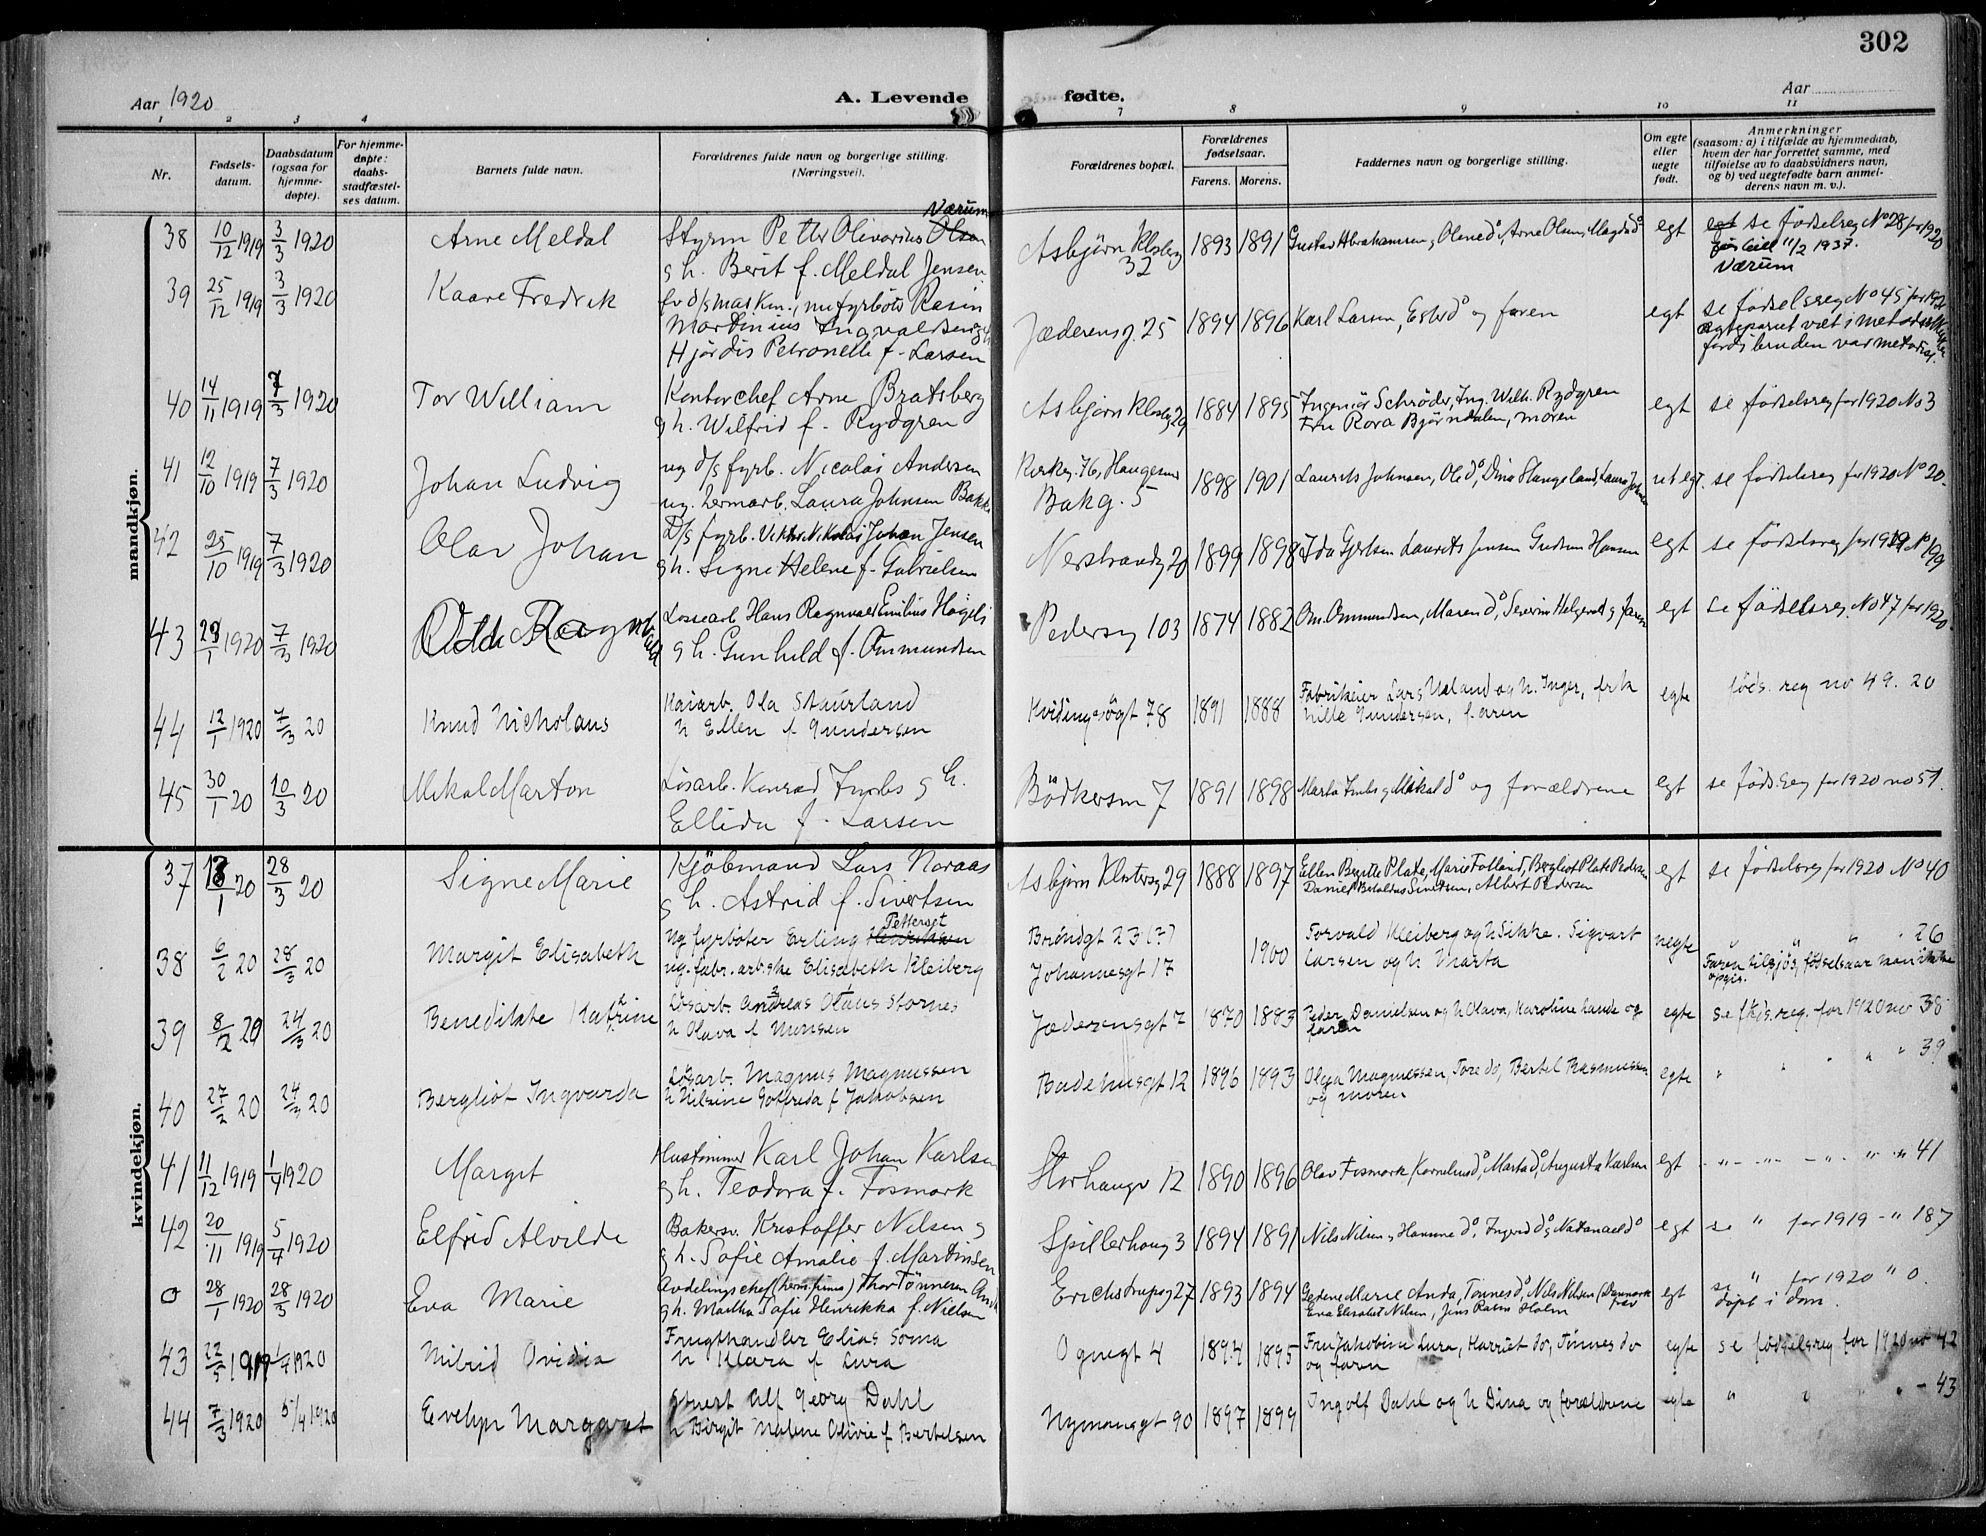 302
Aar 1920
A. Levende
fødte.
Aar
1 2 3 4 5 7 8 9 10 11
Nr.
Fødsels-
datum.
Daabsdatum
(ogsaa for
hjemme-
døpte).
For hjemme-
døpte:
daabs-
stadfæstel-
ses datum.
Barnets fulde navn.
Forældrenes fulde navn og borgerlige stilling.
(Næringsvei).
Forældrenes bopæl.
Forældrenes
fødselsaar.
Farens. Morens.
Faddernes navn og borgerlige stilling.
Om egte
eller
uegte
født.
Anmerkninger
(saasom: a) i tilfælde av hjemmedaab,
hvem der har forrettet samme, med
tilføielse av to daabsvidners navn,
og b) ved uegtefødte barn anmel-
derens navn m. v.).
mandkjøn.
Værum
38 10/12 1919 3/3 1920 Arne Meldal Styrm Petter Olivarius Olsen Asbjørn Klosterg 1893 1891 Gustav Abrahamsen, Olene do, Arne Olsen, Magda do egt se fødselsreg No 28 for 1920
g h. Berit f. Meldal Jensen 32 11/2 1937.
Værum
39 25/12 1919 3/3 1920 Kaare Fredrik fv d/s maskin., nu fyrbøter Rasin Jæderensg. 25 1894 1896 Karl Larsen, Ester do og faren egt se fødselsreg No 45 for 192
Martinius Ingvaldsen g h egteparret viet i metodistkirke
Hjørdis Petronelle f. Larsen fordi bruden var metodist.
40 14/11 1919 7/3 1920 Tor William Kontorchef Arne Bratsberg Asbjørn Klosterg 29 1884 1895 Ingeniør Schrøder, Ing. Wilh. Rydgren egt se fødselsreg for 1920 No 3
g h. Wilfrid f. Rydgren Fru Rora Bjørndalen, moren
41 12/10 1919 7/3 1920 Johan Ludvig ug d/s fyrb. Nicolai Andersen Kirkeg. 76, Haugesund 1898 1901 Laurits Johnsen, Ole do, Dina Stangeland, Laura Johnsen uegt. se fødselsreg for 1920 No 20.
ug. hermarb. Laura Johnsen Bakke Bakg. 5
42 25/10 1919 7/3 1920 Olav Johan D/s fyrb. Viktor Nikolai Johan Jensen Nerstrandg 20 1899 1898 Ida Gjertsen Laurits Jensen Gudrun Hansen egt se fødselsreg for 1919 No 199
g h. Signe Helene f. Gabrielsen
43 29/1 1920 7/3 1920 Odde Ragnvald Lossearb Hans Ragnvald Emilius Høgeli Pedersg 103 1874 1882 Om. Ommundsen, Maren do, Severin Helgevold g faren egt se fødselsreg. No 47 for 1920.
g h. Gunhild f. Ommundsen
44 12/1 1920 7/3 20 Knud Nicholaus Kaiarb. Ola Staurland Kvidingsøgt 78 1891 1888 Fabrikeier Lars Ueland og h. Inger, frk egte føds. reg no 49. 20
h Ellen f Gundersen Lille Gundersen, faren
45 30/1 20 10/3 20 Mikal Marton Løsarb. Konrad Imbs g h. Bødkersm 7 1891 1898 Marta Imbs g Mikal do og forældrene egt se føds.reg for 1920 no 51.
Ellida f. Larsen
kvindekjøn.
37 18/1 20 28/3 20 Signe Marie Kjøbmand Lars Noraas Asbjørn Klosterg 29 1888 1897 Ellen Birgitte Plate, Marie Folland, Bergliot Plate Pedersen egt se fødselsreg for 1920 No 40
g h. Astrid f. Sivertsen Daniel Sivertsen, Albert Pedersen
Petterset
38 6/2 20 28/3 20 Margit Elisabeth Ug fyrbøter Erling Henriksen Brøndgt 23 (?) 1900 Torvald Kleiberg og h Sikke. Sigvart uegte " " " 26
ug. fabr. arb.ske Elisabeth Kleiberg Johannesgt 17 Larsen og h Marta Faren tilsjøs, fødselsaar kan ikke opgis.
39 8/2 20 24/3 20 Benedikte Katrine Løsarb. Andreas Olaus Stornes Jæderensgt 7 1870 1883 Peder Danielsen og h Olava, Karoline Lande og egte se føds. reg. for 1920 no 38
h Olava f Monsen faren
40 27/2 20 24/3 20 Bergliot Ingvarda Løsarb. Magnus Magnussen Badehusgt 12 1896 1893 Olga Magnussen, Tore do, Bertel Rasmussen egte " " " " " 39
h Nilsine Gotfreda f Jakobsen og moren
41 11/12 1919 1/4 1920 Margit Hustømmer Karl Johan Karlsen Storhaugv 12 1890 1896 Olav Fosmark, Kornelius do, Marta do, Augusta Karlsen egt " " " " " 41
g h. Teodora f. Fosmark
42 20/11 1919 5/4 1920 Elfrid Alvilde Bakersv. Kristoffer Nilsen g Spillerhaug 3 1894 1891 Nils Nilsen, Hansine do, Ingvid do, Natanael do egt se " for 1919 - " 187
g h. Sofie Amalie f. Martinsen
0 28/1 1920 28/3 1920 Eva Marie Avdelingschef (herm.firma) Thor Tønnesen Anda Erichstrupsg 27 1893 1894 Gedine Marie Anda, Tønnes do, Nils Nilsen (Danmark) egt se " for 1920 " 0.
g h. Martha Sofie Henrikka f. Nielsen Eva Elisabet Nilsen, Jens Holm døpt i dom.
43 22/5 1919 1/4 1920 Milrid Ovidia Frugthandler Elias Søma Ognegt 4 1894 1895 Fru Jakobine Lura, Harriet do, Tønnes do egte se fødselsreg for 1920 no 42
h Klara f Lura og faren
44 7/3 1920 5/4 1920 Evelyn Margaret Gruert Ulf Georg Dahl Nymansgt 90 1897 1899 Ingolf Dahl og h Dina og forældrene egte " " " " - 43
h Birgit Malene Olivie f Bertelsen